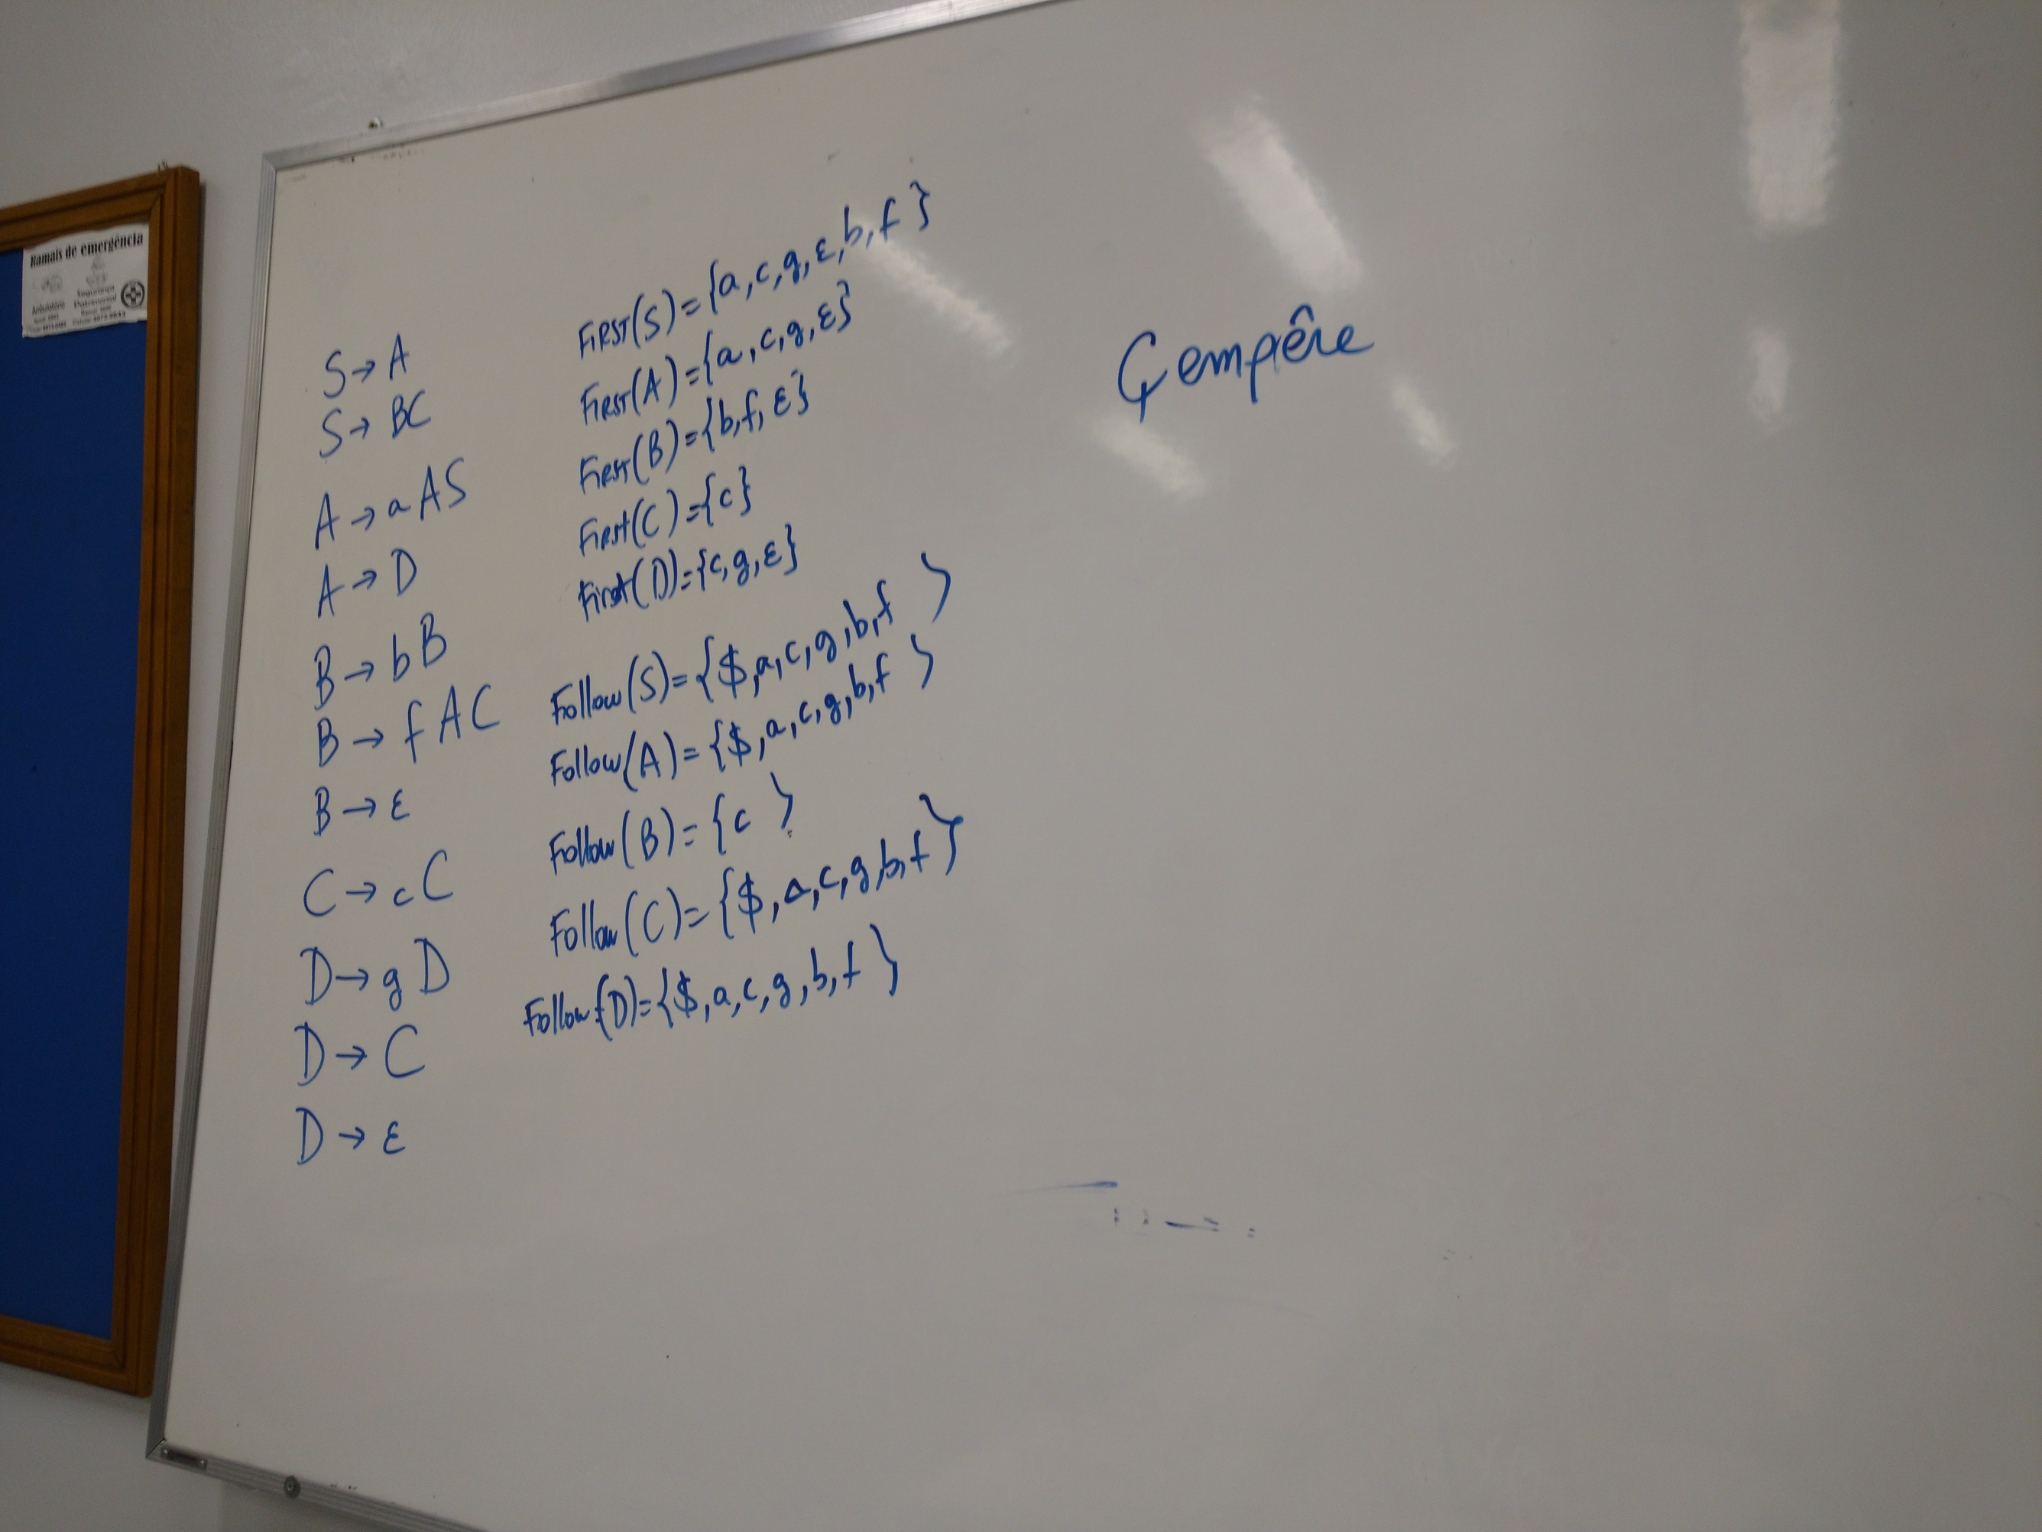 Ramais de emergência
S → A
S → BC
A → aAS
A → D
B → bB
B → fAC
B → ε
C → cC
D → gD
D → C
D → ε
FIRST(S) = {a, c, g, ε, b, f}
FIRST(A) = {a, c, g, ε}
FIRST(B) = {b, f, ε}
First(C) = {c}
First(D) = {c, g, ε}
Follow(S) = {$, a, c, g, b, f}
Follow(A) = {$, a, c, g, b, f}
Follow(B) = {c}
Follow(C) = {$, a, c, g, b, f}
Follow(D) = {$, a, c, g, b, f}
Çempêre